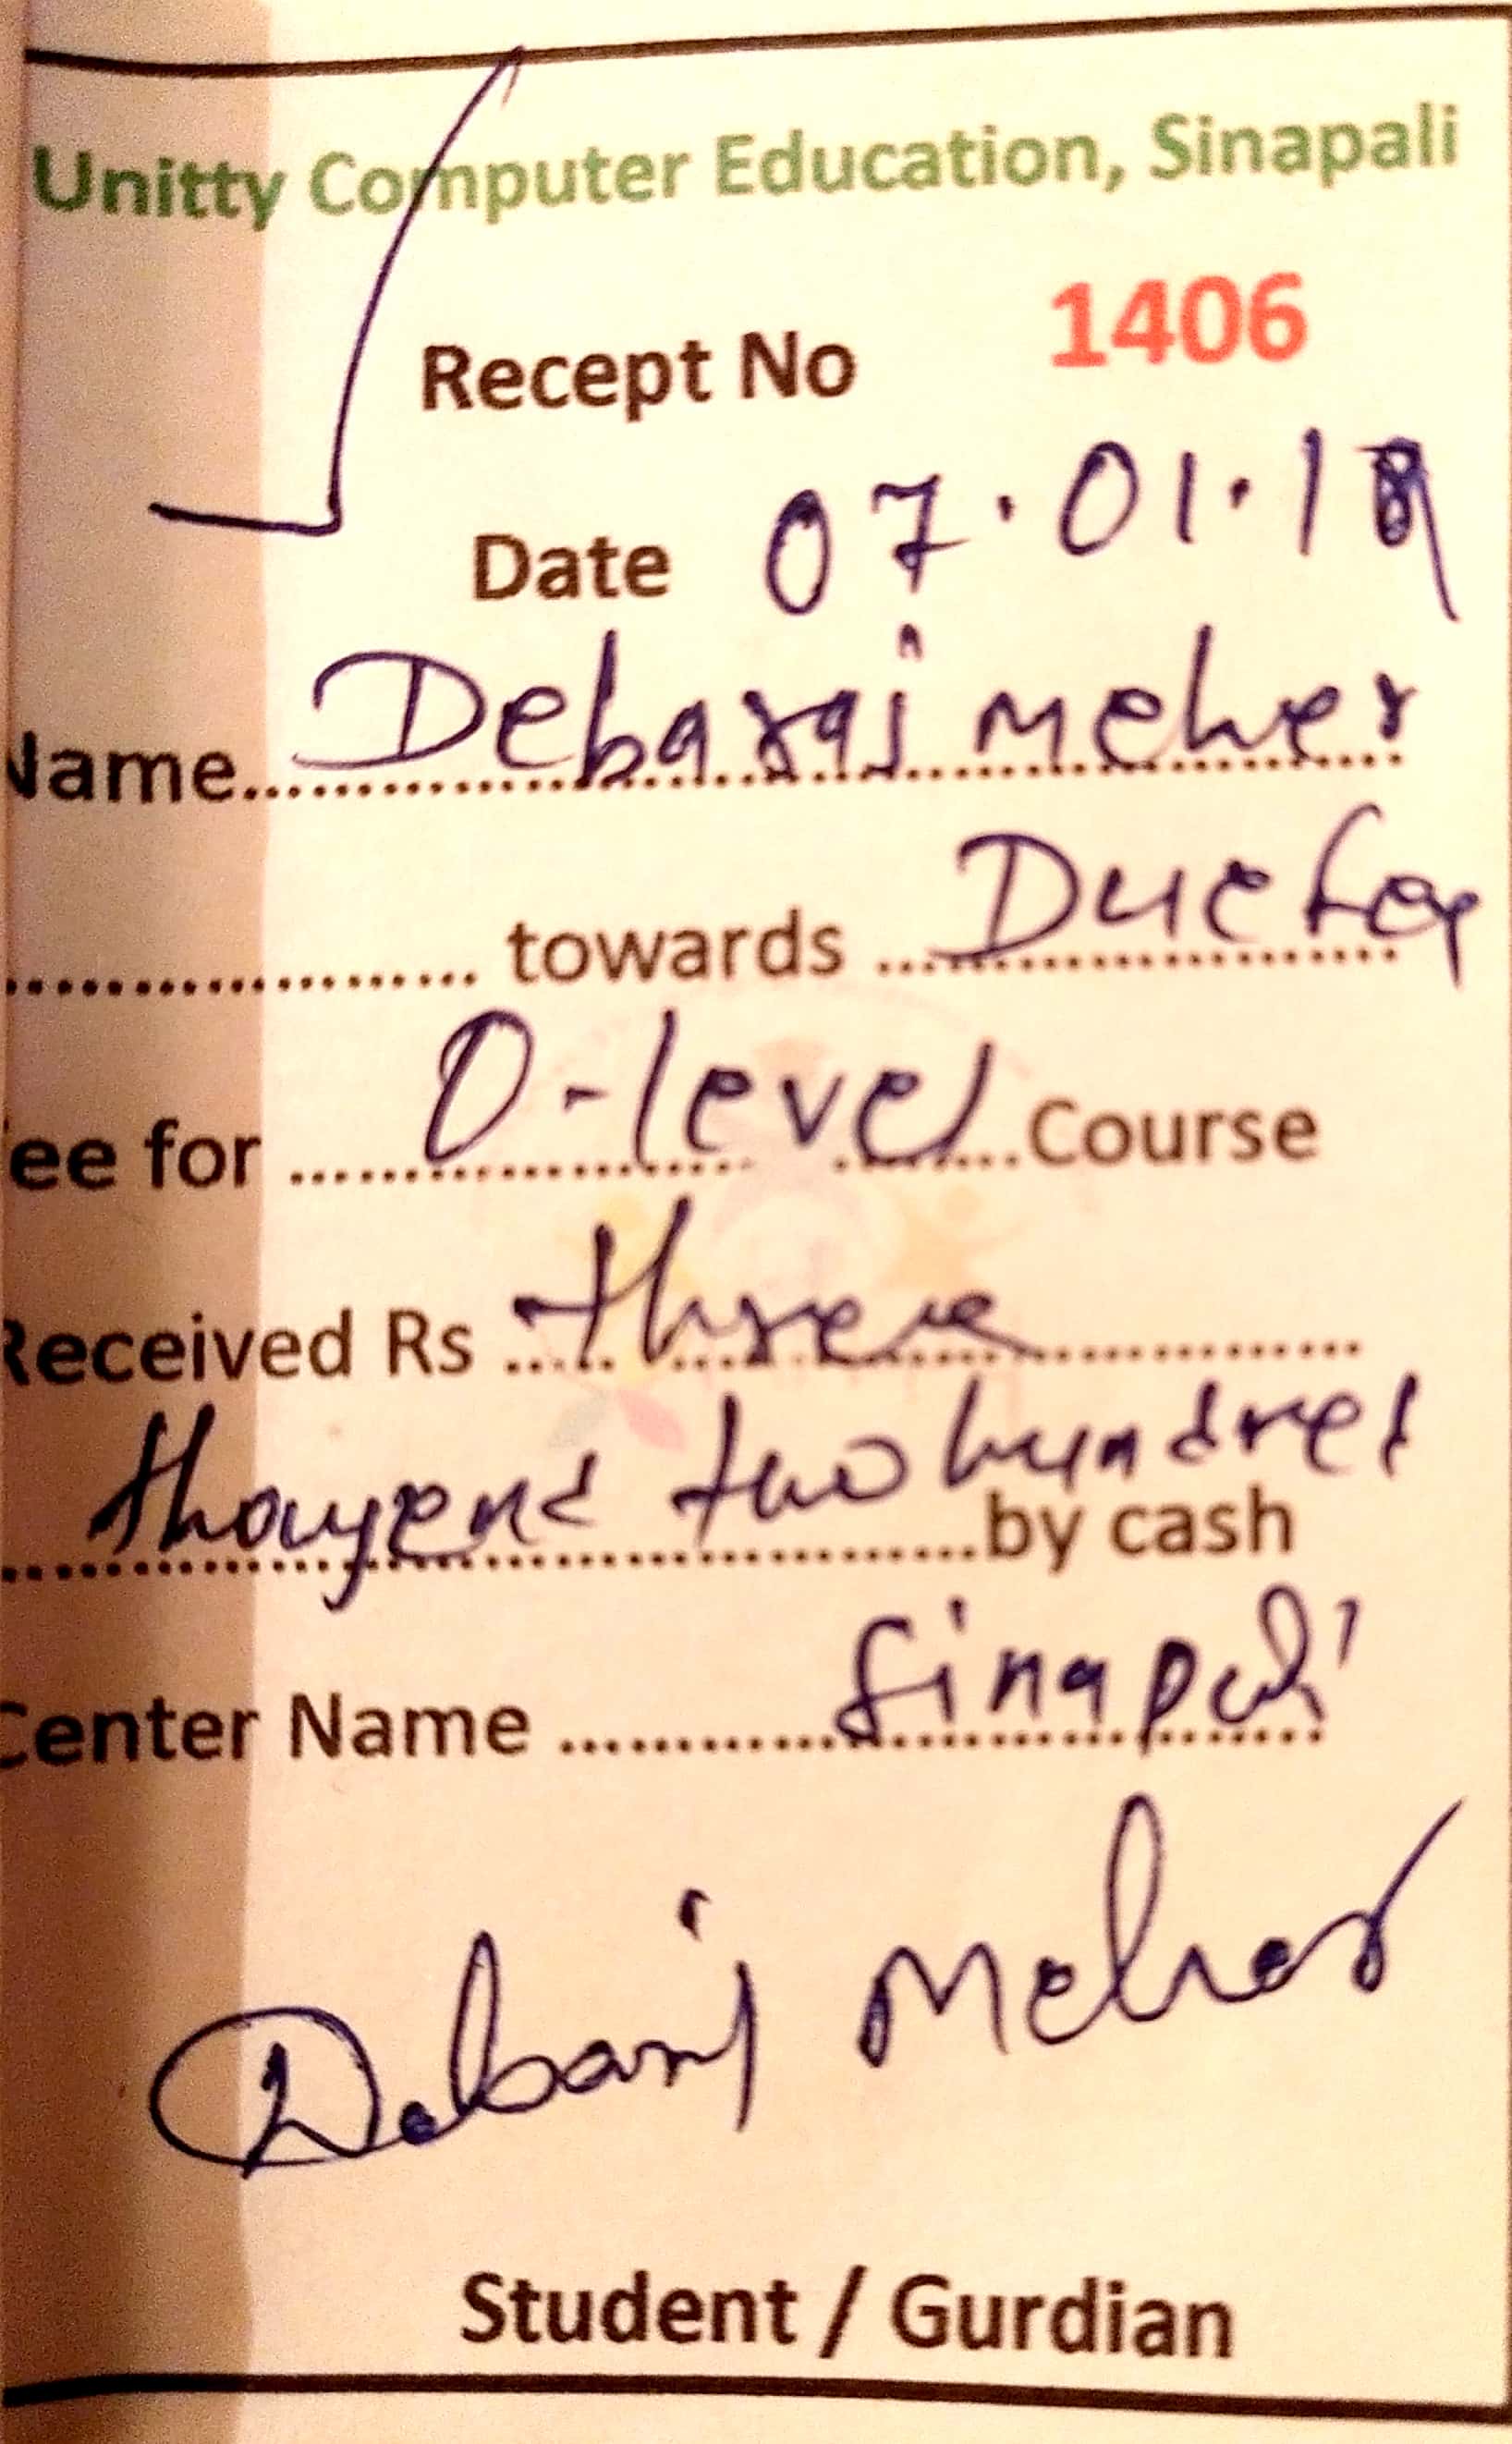 Unitty Computer Education, Sinapali
Recept No 1406
Date 07.01.19
Name Debaraj meher
towards Due fee
ee for O-level Course
Received Rs three
thousend two hundred
by cash
Center Name Sinapali
Debaraj Meher
Student / Gurdian